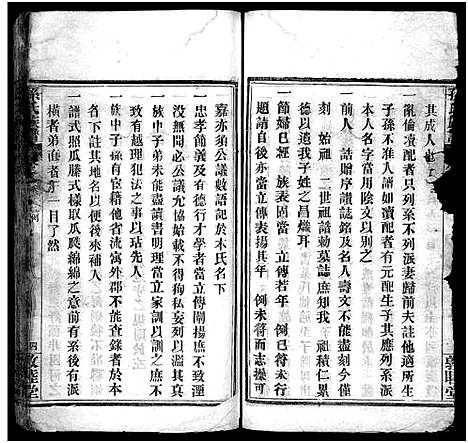 其成人也
一亂倫瀆配者只列系不列派妻歸前夫註他適所生
子孫不准入譜以示有別前者有元配生子其應列系
本人名字當用陰文以別之
一誥贈序讚誌銘及名人壽文不能盡刻今僅
刻 始祖 二世祖譜勅墓誌庶知我 祖積仁累
德以遺我子姓之昌熾耳
一節婦已經 族表固當立傳若年 例已符未行
題請者於亦當立傳表揚其年 例未符而志操可
嘉亦須公議數語記於本氏名下
一忠孝節義及有德行才學者當立傳闡揚庶不致湮
沒不彰但必公議允協始載不得狥私妄列以濫其真
一族中子弟未能盡讀書明理當立家訓以訓之庶不
致有越理犯法之事以玷先人
一族中子孫有宦籍他省流寓外郡不能查錄者於本
名下註其地名以便後來補入
一譜式照瓜藤式樣取瓜瓞綿綿之意前有系後有派
橫者弟直者 一目了然
四 敦睦堂